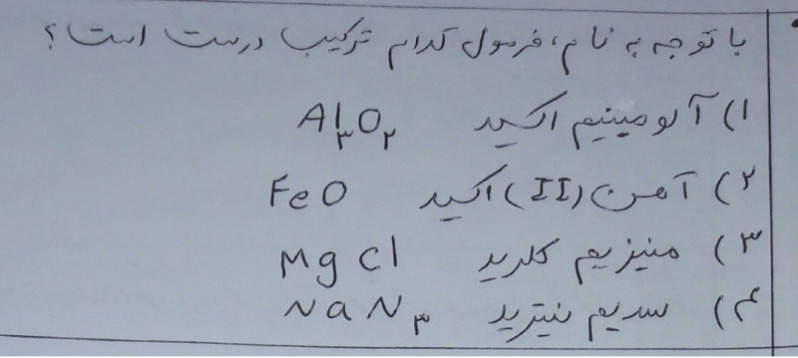 با توجه به نام، فرمول کدام ترکیب درست است؟
۱) آلومینیم اکسید Al۳O۲
۲) آهن (II) اکسید FeO
۳) منیزیم کلرید MgCl
۴) سدیم نیترید NaN۳